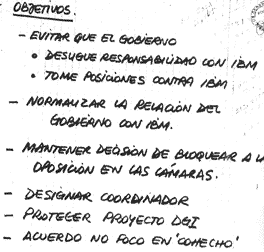 OBJETIVOS.
- EVITAR QUE EL GOBIERNO
• DESLIGUE RESPONSABILIDAD CON IBM
• TOME POSICIONES CONTRA IBM
- NORMALIZAR LA RELACION DEL
GOBIERNO CON IBM.
- MANTENER DECISION DE BLOQUEAR A LA
OPOSICION EN LAS CÁMARAS.
- DESIGNAR COORDINADOR
- PROTEGER PROYECTO DGI
- ACUERDO NO FOCO EN 'COHECHO'